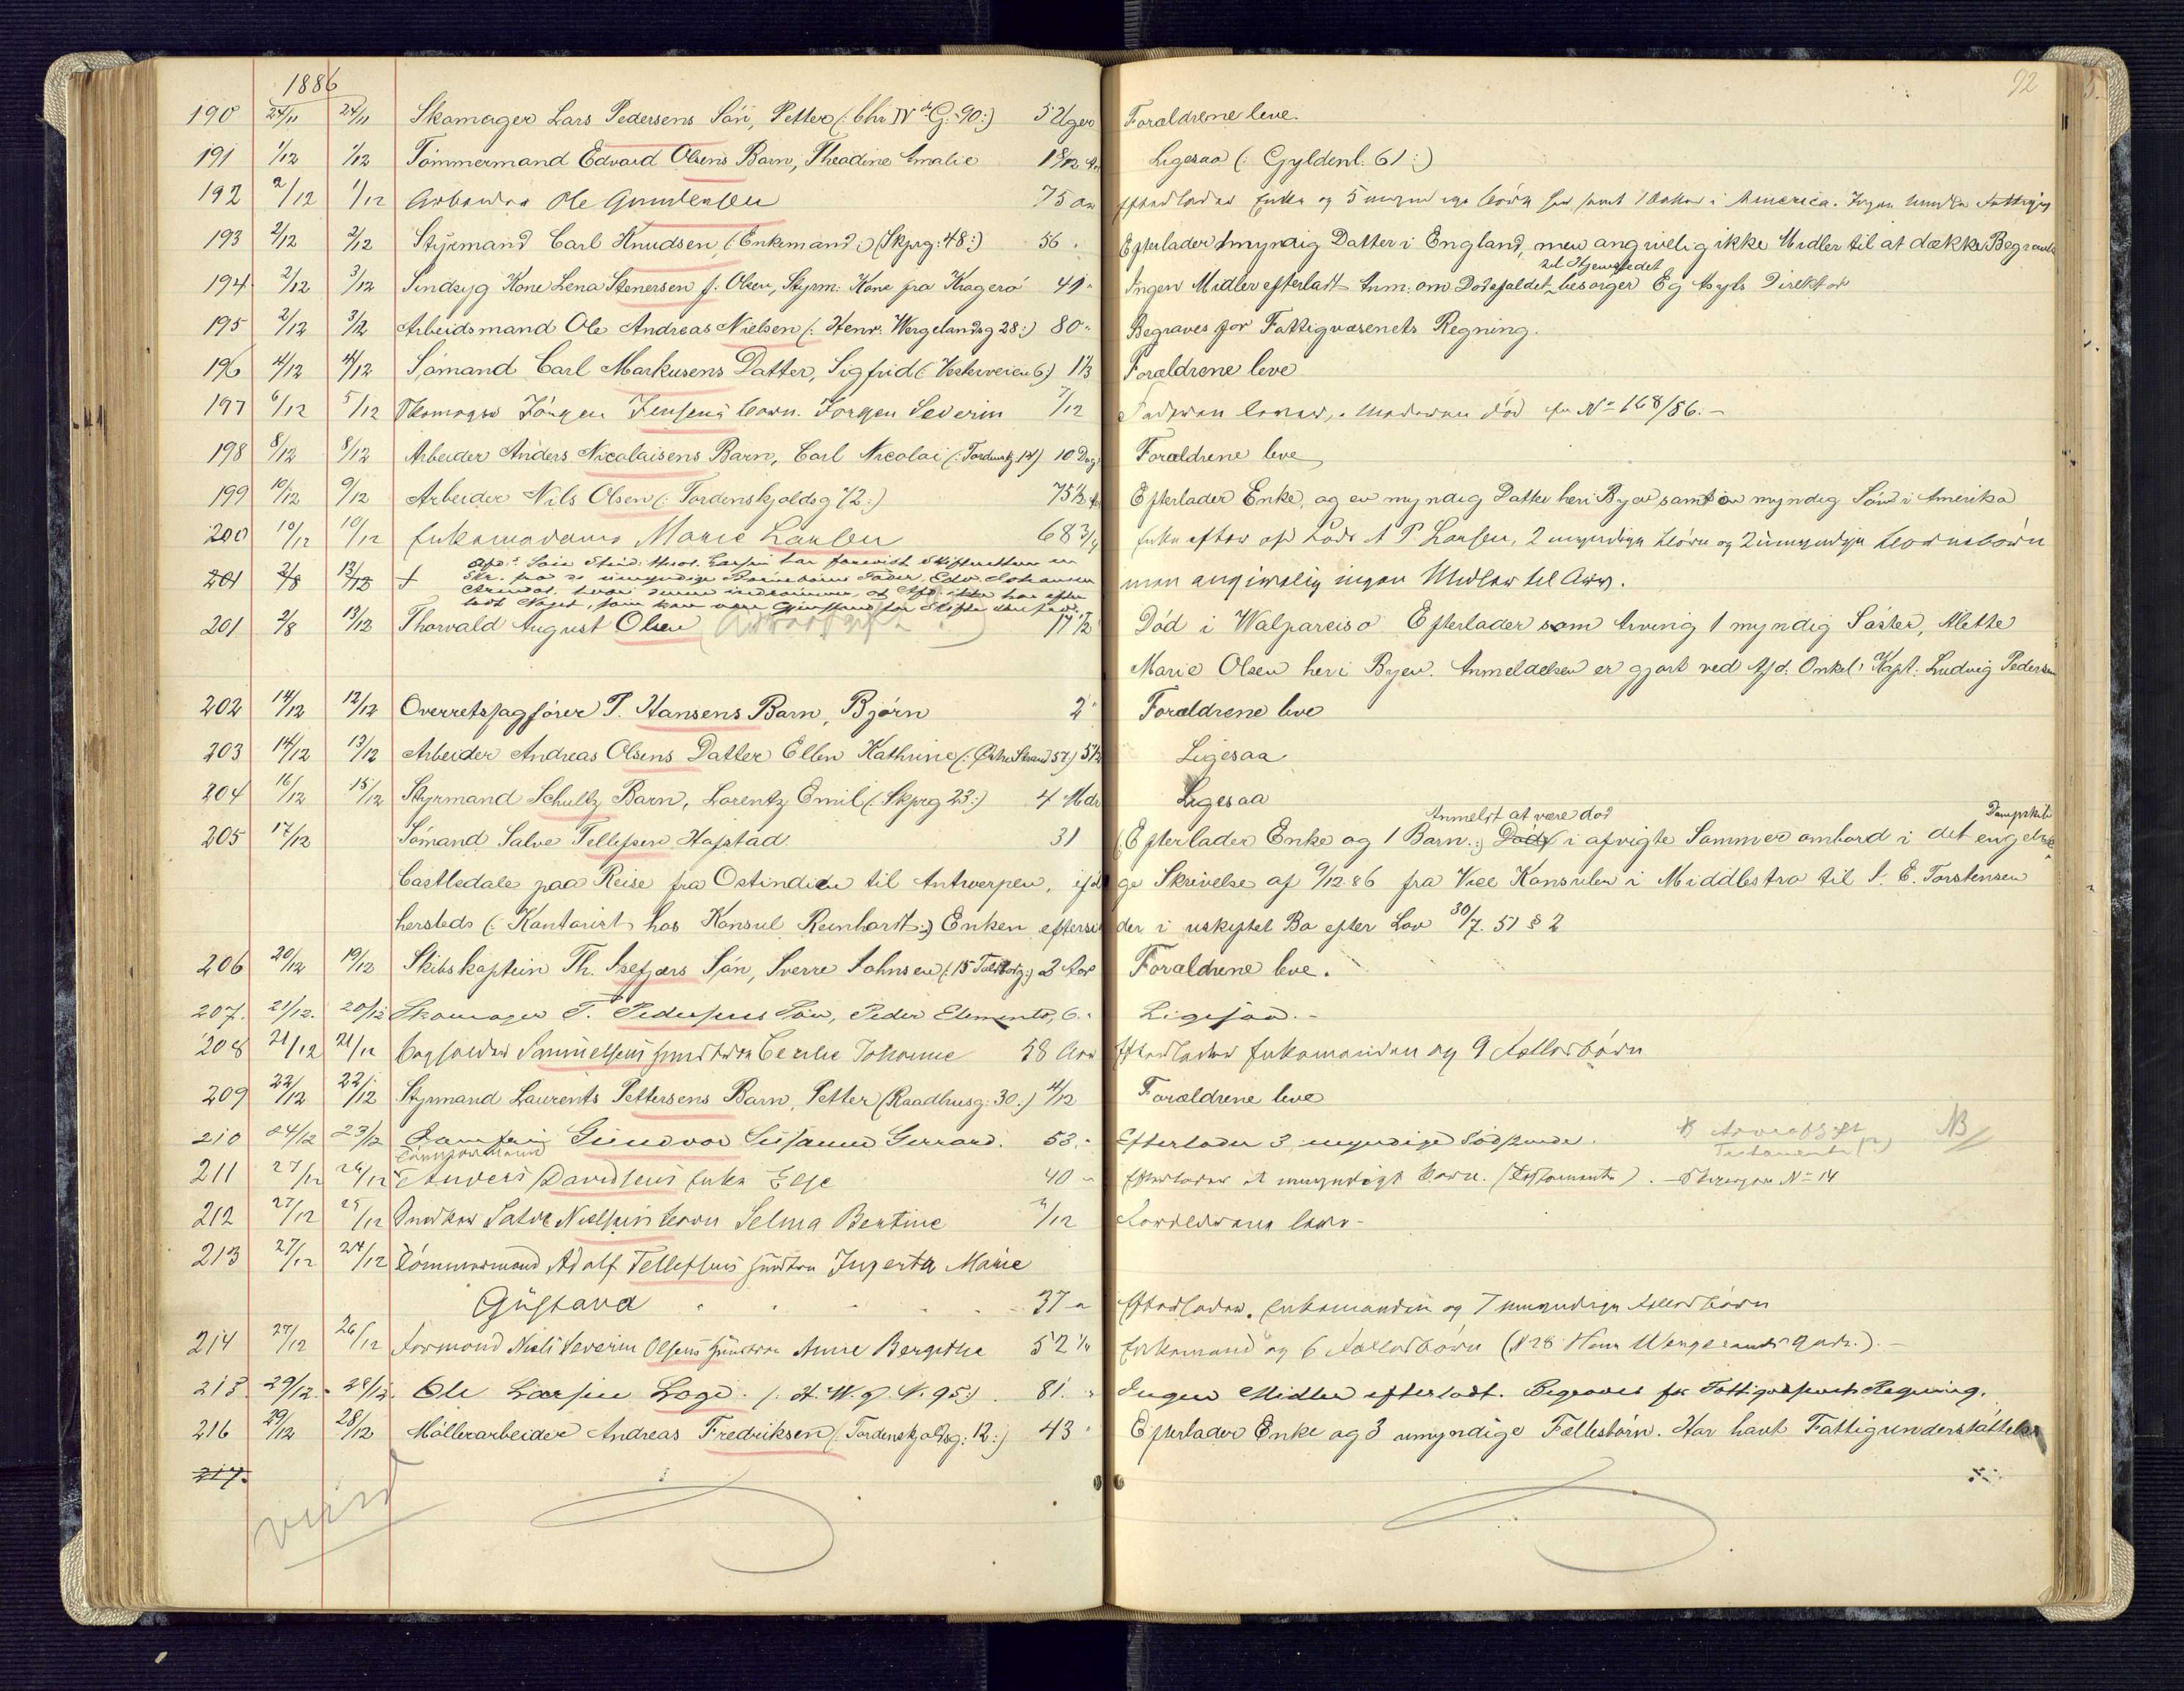 92
1886
190 24/11 24/11 Skomager Lars Pedersens Sön, Petter (: Chr IV de G. 90:) 5 Uger Forældrene leve.
191 1/12 1/12 Tömmermand Edvard Olsens Barn, Theodine Amalie 1 8/12 Ligesaa (: Gyldenl. 61:)
192 2/12 1/12 Arbeider Ole Gundersen 75 Aar Efterlader Enke og 5 myndige Börn her samt 1 Datter i America. Ingen Midler
193 2/12 2/12 Styrmand Carl Knudsen, (: Enkemand:) (Skprg: 48:) 56 " Efterlader 1 myndig Datter i England, men angivelig ikke Midler til at dække Begravels
til Hjemstedet
194 2/12 3/12 Sindsyg Kone Lena Stenersen f. Olsen, Styrm: Kone fra Kragerö 41 " Ingen Midler efterladt. Anm: om Dödsfaldet besörger Eg Asyls Direktör
195 2/12 3/12 Arbeidsmand Ole Andreas Nielsen (: Henr. Wergelandsg 28:) 80 " Begraves for Fattigvæsenets Regning.
196 4/12 4/12 Sömand Carl Markusens Datter, Sigfrid (: Vesterveien 6:) 1 1/3 Forældrene leve
197 6/12 5/12 Skomager Jörgen Jensens Barn. Jörgen Severin 7/12 Faderen lever, Moderen död No 168/86. -
198 8/12 8/12 Arbeider Anders Nicolaisens Barn, Carl Nicolai (: Tordenskg 14) 10 Dag Forældrene leve
199 10/12 9/12 Arbeider Nils Olsen (: Tordenskjoldsg 72:) 75 1/2 Efterlader Enke, og en myndig Datter her i Byen samt en myndig Sön i Amerika
200 10/12 10/12 Enkemadame Marie Larsen 68 3/4 Enke efter afd A P Larsen, 2 myndige Börn og 2 umyndige Börnebörn
201 2/8 13/12 + men angivelig ingen Midler til Arv.
Afd. Sön Stud: theol. Larsen har forevist Skifteretten en
Skr. fra de umyndige Börnebörns Fader, Edv. Johansen
Arendal, hvori denne indrömmer, at Afd. ikke har efter-
ladt Noget, som kan være Gjenstand for Skifte
201 2/8 13/12 Thorvald August Olsen 17 1/2 Död i Walpareiso Efterlader som Arving 1 myndig Söster, Alette
Marie Olsen her i Byen. Anmeldelsen er gjort ved Afd: Onkel, Kapt: Ludvig Pedersen
202 14/12 12/12 Overretssagförer P. Hansens Barn, Björn 2 " Forældrene leve
203 14/12 13/12 Arbeider Andreas Olsens Datter Ellen Kathrine (: Östre Strand 57) 5 1/2 Ligesaa
204 16/12 15/12 Styrmand Schultz Barn, Lorentz Emil (: Skprg 23:) 4 Mdr Ligesaa
Anmeldt at være död Dampskib
205 17/12 Sömand Salve Tellefsen Hafstad. 31 (: Efterlader Enke og 1 Barn.:) Död i afvigte Sommer ombord i det engelske
Castledale paa Reise fra Ostindien til Antwerpen, iföl ge Skrivelse af 9/12 86 fra Vice Konsulen i Middlesbro til A. E. Torstensen
hersteds (: Kontorist hos Konsul Reinhardt:) Enken eftersid der i uskiftet Bo efter Lov 30/7. 51 § 2
206 20/12 19/12 Skibskaptein Th. Isefjærs Sön, Sverre Johnsen (: 15 Toldbodg:) 2 Aar Forældrene leve.
207. 21/12. 20/12 Skomager T. Pedersens Sön, Peder Elements, 6. " Ligesaa. -
208 21/12 21/12 Samuelsens Hustru Cecilie Johanne 58 Aar Efterlader Enkemanden og 9 Fællesbörn
209 22/12 22/12 Styrmand Laurents Pettersens Barn, Petter (Raadhusg: 30:) 4/12 Forældrene leve
210 24/12 23/12 Gundvor Susanne Gerrard. 53. " Efterlader 3 myndige Södskende. Arveafgift Testamente (?) NB
Tömmermand
211 27/12 26/12 Anders Davidsens Enke Else 40 " Efterlader et umyndigt Barn. (Testamente). No 14
212 27/12 25/12 Snedker Salve Nielsens Barn Selma Bertine /12 Forældrene leve -
213 27/12 24/12 Tömmermand Adolf Tellefsens Hustru Ingerta Marie
Gustava 37 " Efterlader Enkemanden og 7 umyndige Fællesbörn
214 27/12 26/12 Formand Niels Severin Olsens Hustru Anne Bergithe 52 1/4 Enkemand og 6 Fællesbörn (N 28 Henr Wergelands Gade.). -
215 29/12. 28/12. Ole Larsen Loge. (: H. W. g. N. 95:). 81. " Ingen Midler efterladt. Begraves for Fattigvæsenets Regning.
216 29/12 28/12 Möllerarbeider Andreas Fredriksen (: Tordenskjoldsg: 12:) 43 " Efterlader Enke og 3 umyndige Fællesbörn. Har havt Fattigunderstöttelse
217.